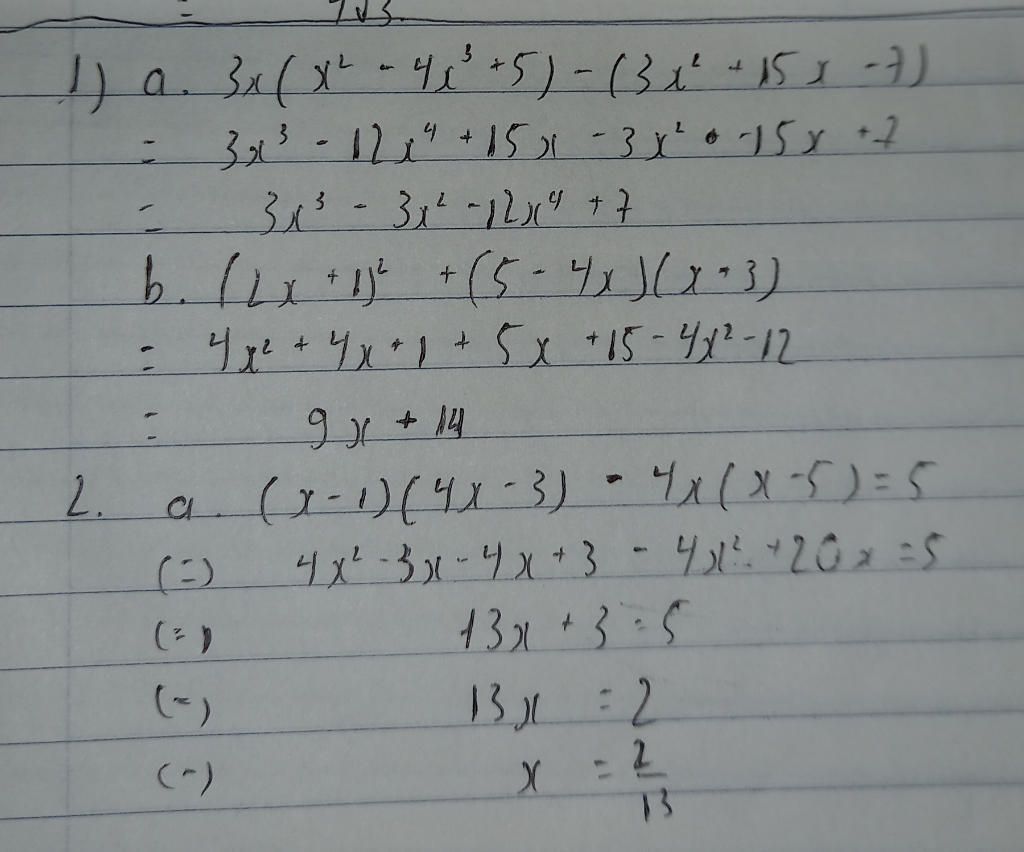 = 7√3
1) a. 3x(x² - 4x³ + 5) - (3x² + 15x - 7)
= 3x³ - 12x⁴ + 15x - 3x² - 15x + 7
= 3x³ - 3x² - 12x⁴ + 7
b. (2x + 1)² + (5 - 4x)(x + 3)
= 4x² + 4x + 1 + 5x + 15 - 4x² - 12
= 9x + 14
2. a. (x - 1)(4x - 3) - 4x(x - 5) = 5
(=) 4x² - 3x - 4x + 3 - 4x² + 20x = 5
(=) 13x + 3 = 5
(=) 13x = 2
(=) x = 2/13